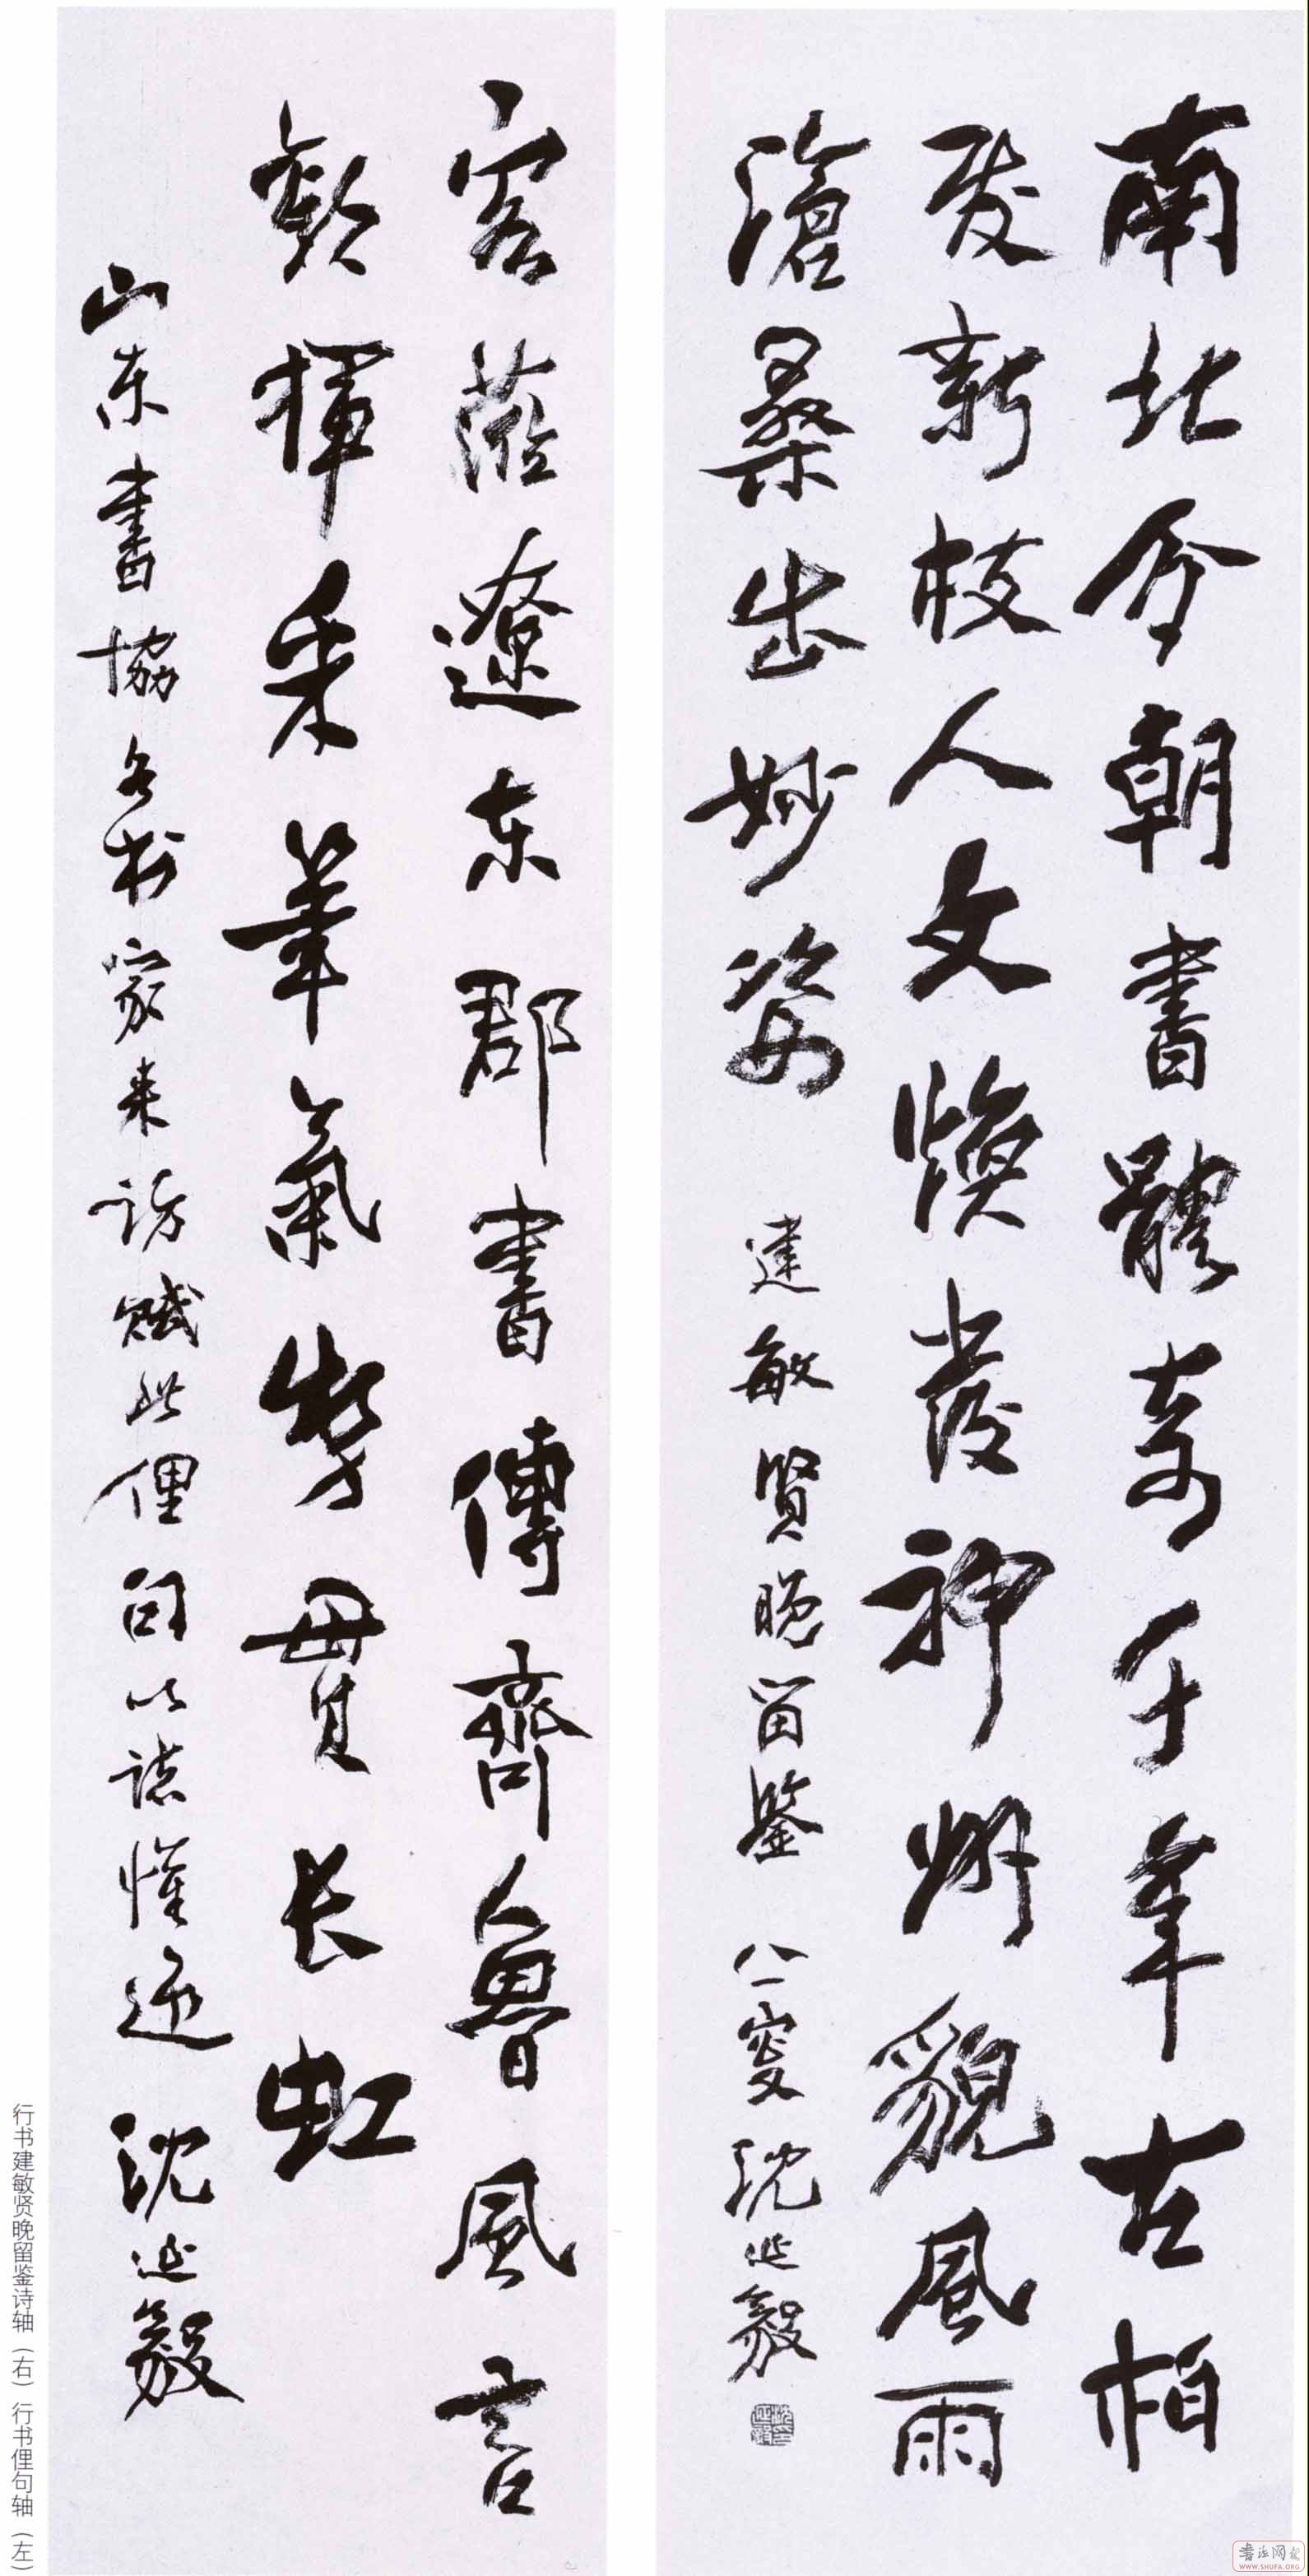 南北分朝書體奇千年古柏
发新枝人文焕發神州貌風雨
滄桑出妙姿 建敏賢晚留鉴 八一叟沈延毅
客蒞遼东郡書傳齊魯風言
歡揮采筆氣势貫长虹
山东書協各书家来访赋此俚句以誌懽迎 沈延毅
行书建敏贤晚留鉴诗轴（右） 行书俚句轴（左）
WWW.SHUFA.ORG